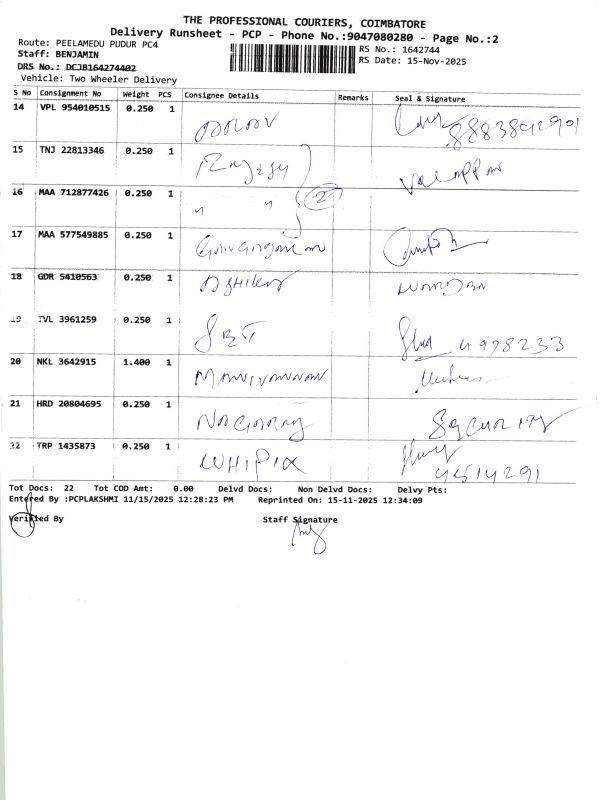 THE PROFESSIONAL COURIERS, COIMBATORE
Delivery Runsheet - PCP - Phone No.:9047080280 - Page No.:2
Route: PEELAMEDU PUDUR PC4
RS No.: 1642744
Staff: BENJAMIN
RS Date: 15-Nov-2025
DRS No.: DCJB164274402
Vehicle: Two Wheeler Delivery
S No Consignment No Weight PCS Consignee Details Remarks Seal & Signature
14 VPL 954010515 0.250 1 8883842901
15 TNJ 22813346 0.250 1 Rajesh
16 MAA 712877426 0.250 1 " " 2
17 MAA 577549885 0.250 1
18 GDR 5410563 0.250 1
19 TVL 3961259 0.250 1 SBI 4978233
20 NKL 3642915 1.400 1 Manivannan
21 HRD 20804695 0.250 1 Security
22 TRP 1435873 0.250 1 WHIPIX 4514291
Tot Docs: 22 Tot COD Amt: 0.00 Delvd Docs: Non Delvd Docs: Delvy Pts:
Entered By :PCPLAKSHMI 11/15/2025 12:28:23 PM Reprinted On: 15-11-2025 12:34:09
Verified By Staff Signature